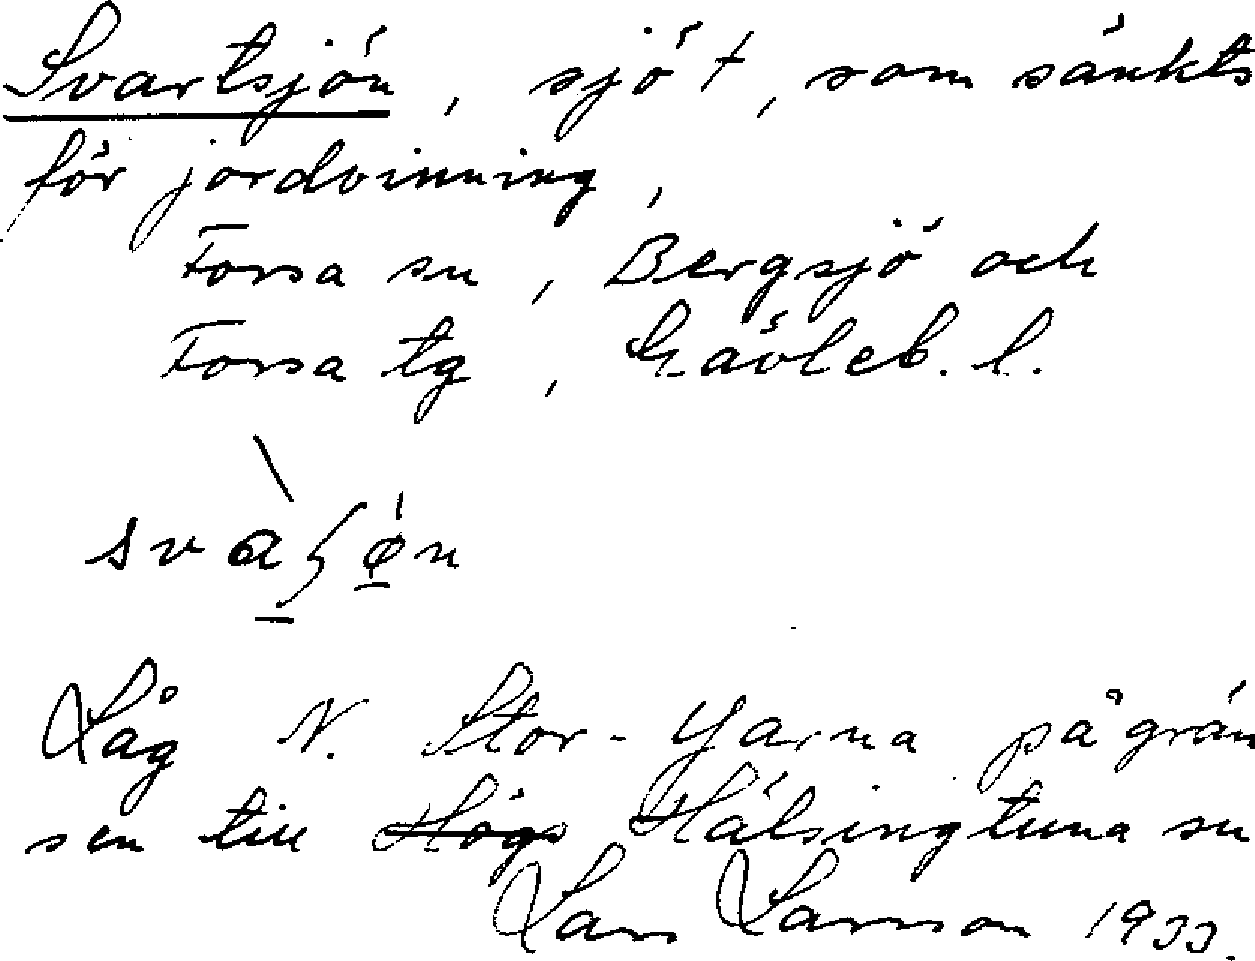 Svartsjön, sjö †, som sänkts
för jordvinning,
Forsa sn, Bergsjö och
Forsa tg, Gävleb. l.
Låg N. Stor-Yarna på grän
sen till Högs Hälsingtuna sn
Lars Larsson 1933.